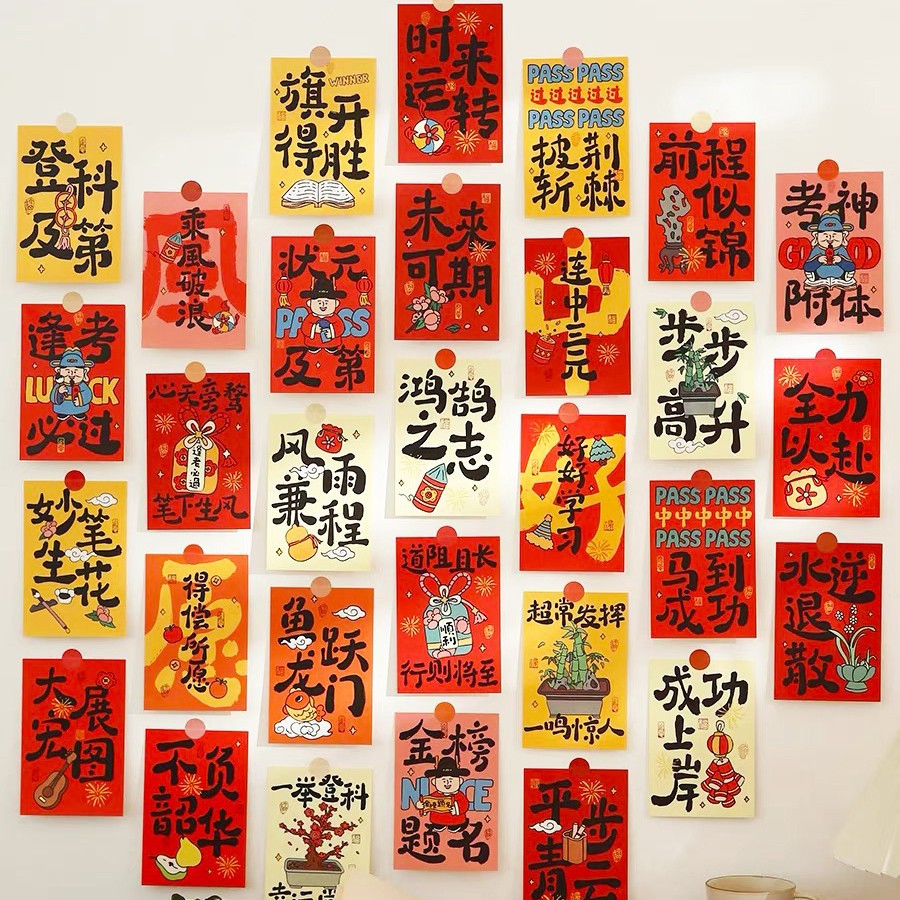 登科
及第
逢考
LUCK
必过
妙笔
生花
大展
宏图
乘風破浪
心无旁骛
逢考必過
笔下生风
得偿所愿
不负
韶华
旗开
WINNER
得胜
状元
PASS
及第
风雨
兼程
鱼跃
龙门
一举登科
时来
运转
未來
可期
鸿鹄
之志
道阻且长
順利
行则将至
金榜
NICE
金榜題名
题名
PASS PASS
过过过过过
PASS PASS
披荆
斩棘
连中三元
好
好好学习
超常发挥
一鸣惊人
平步
青云
前程
似锦
步步
高升
PASS PASS
中中中中中
PASS PASS
马到
成功
成功
上岸
考神
GOOD
附体
全力
以赴
水逆
退散